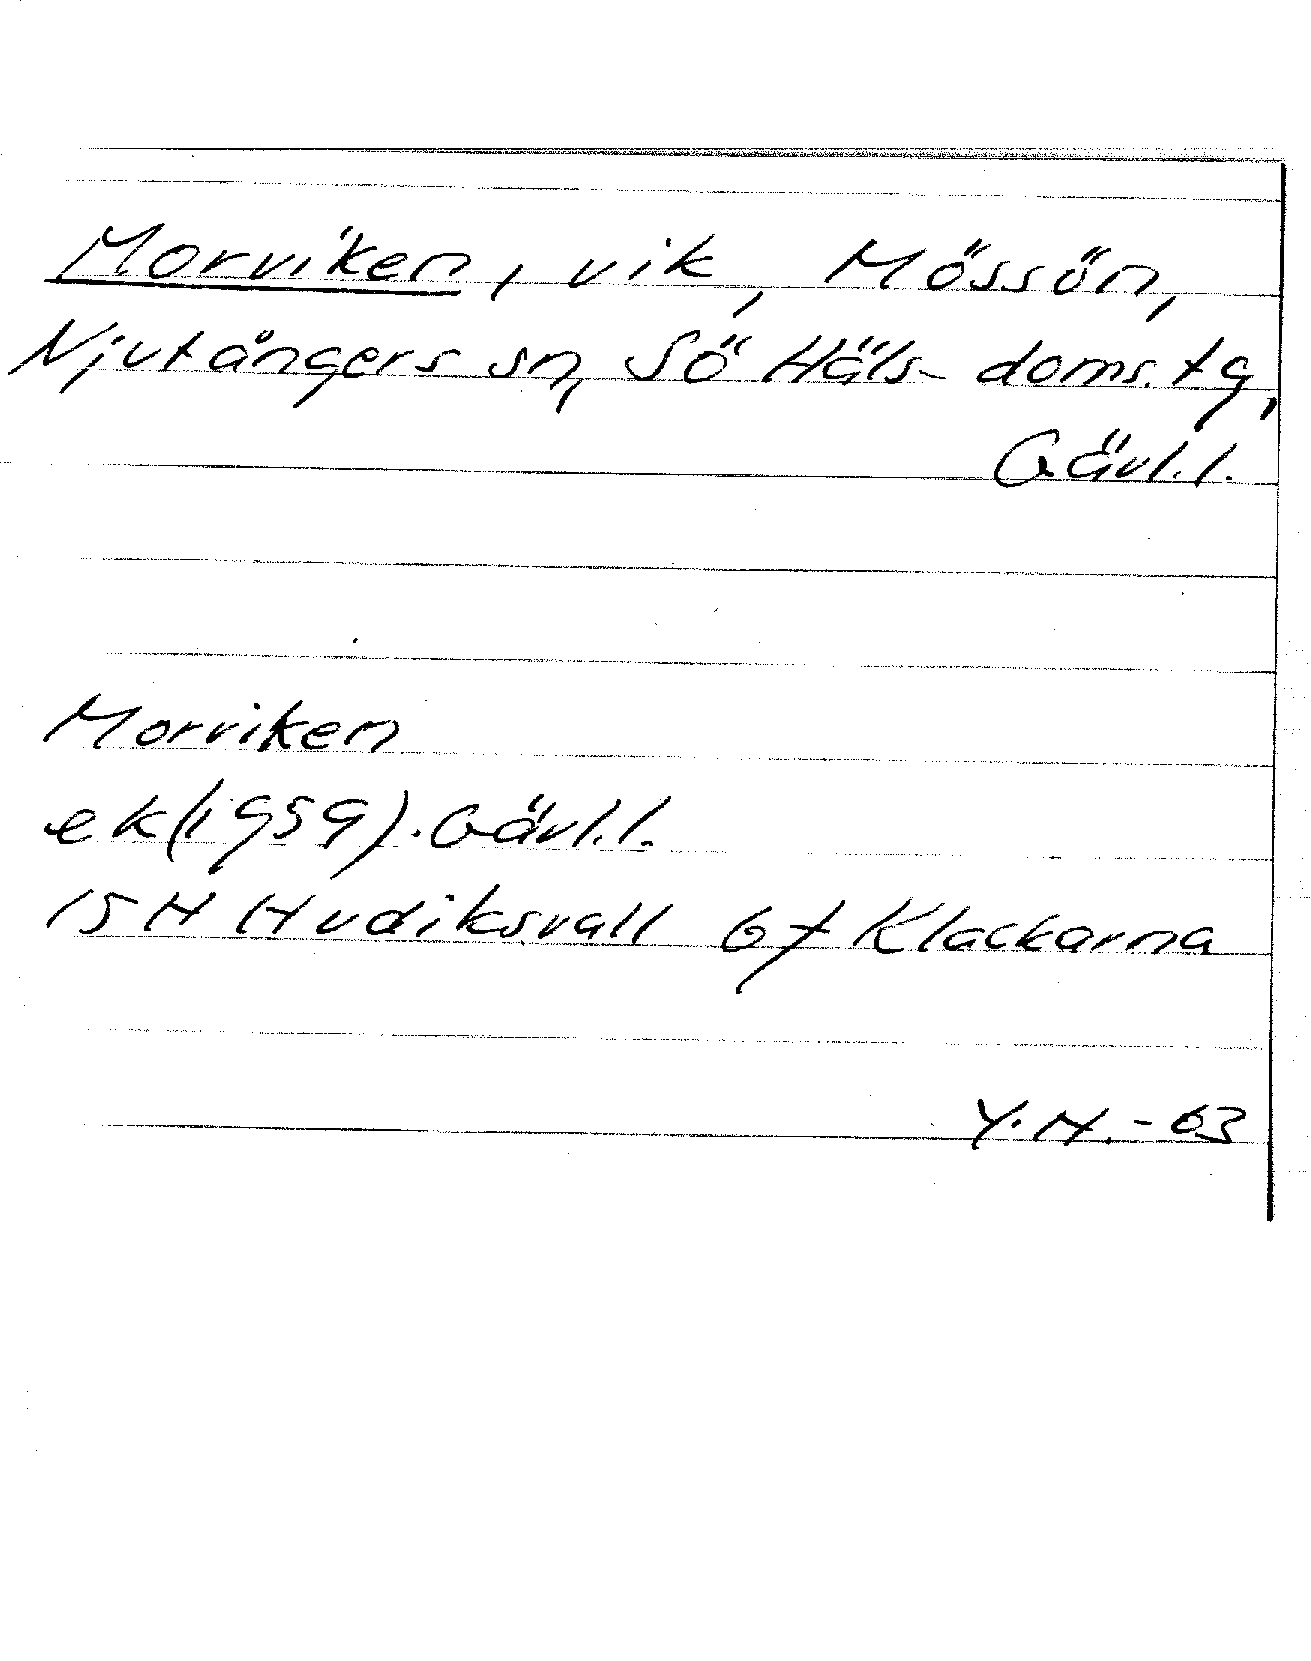 Morviken, vik, Mössön,
Njutångers sn, Sö Häls- doms. tg,
Gävl.l.
Morviken
ek(1959). Gävl.l.
15H Hudiksvall 6f Klackarna
Y.H. -63